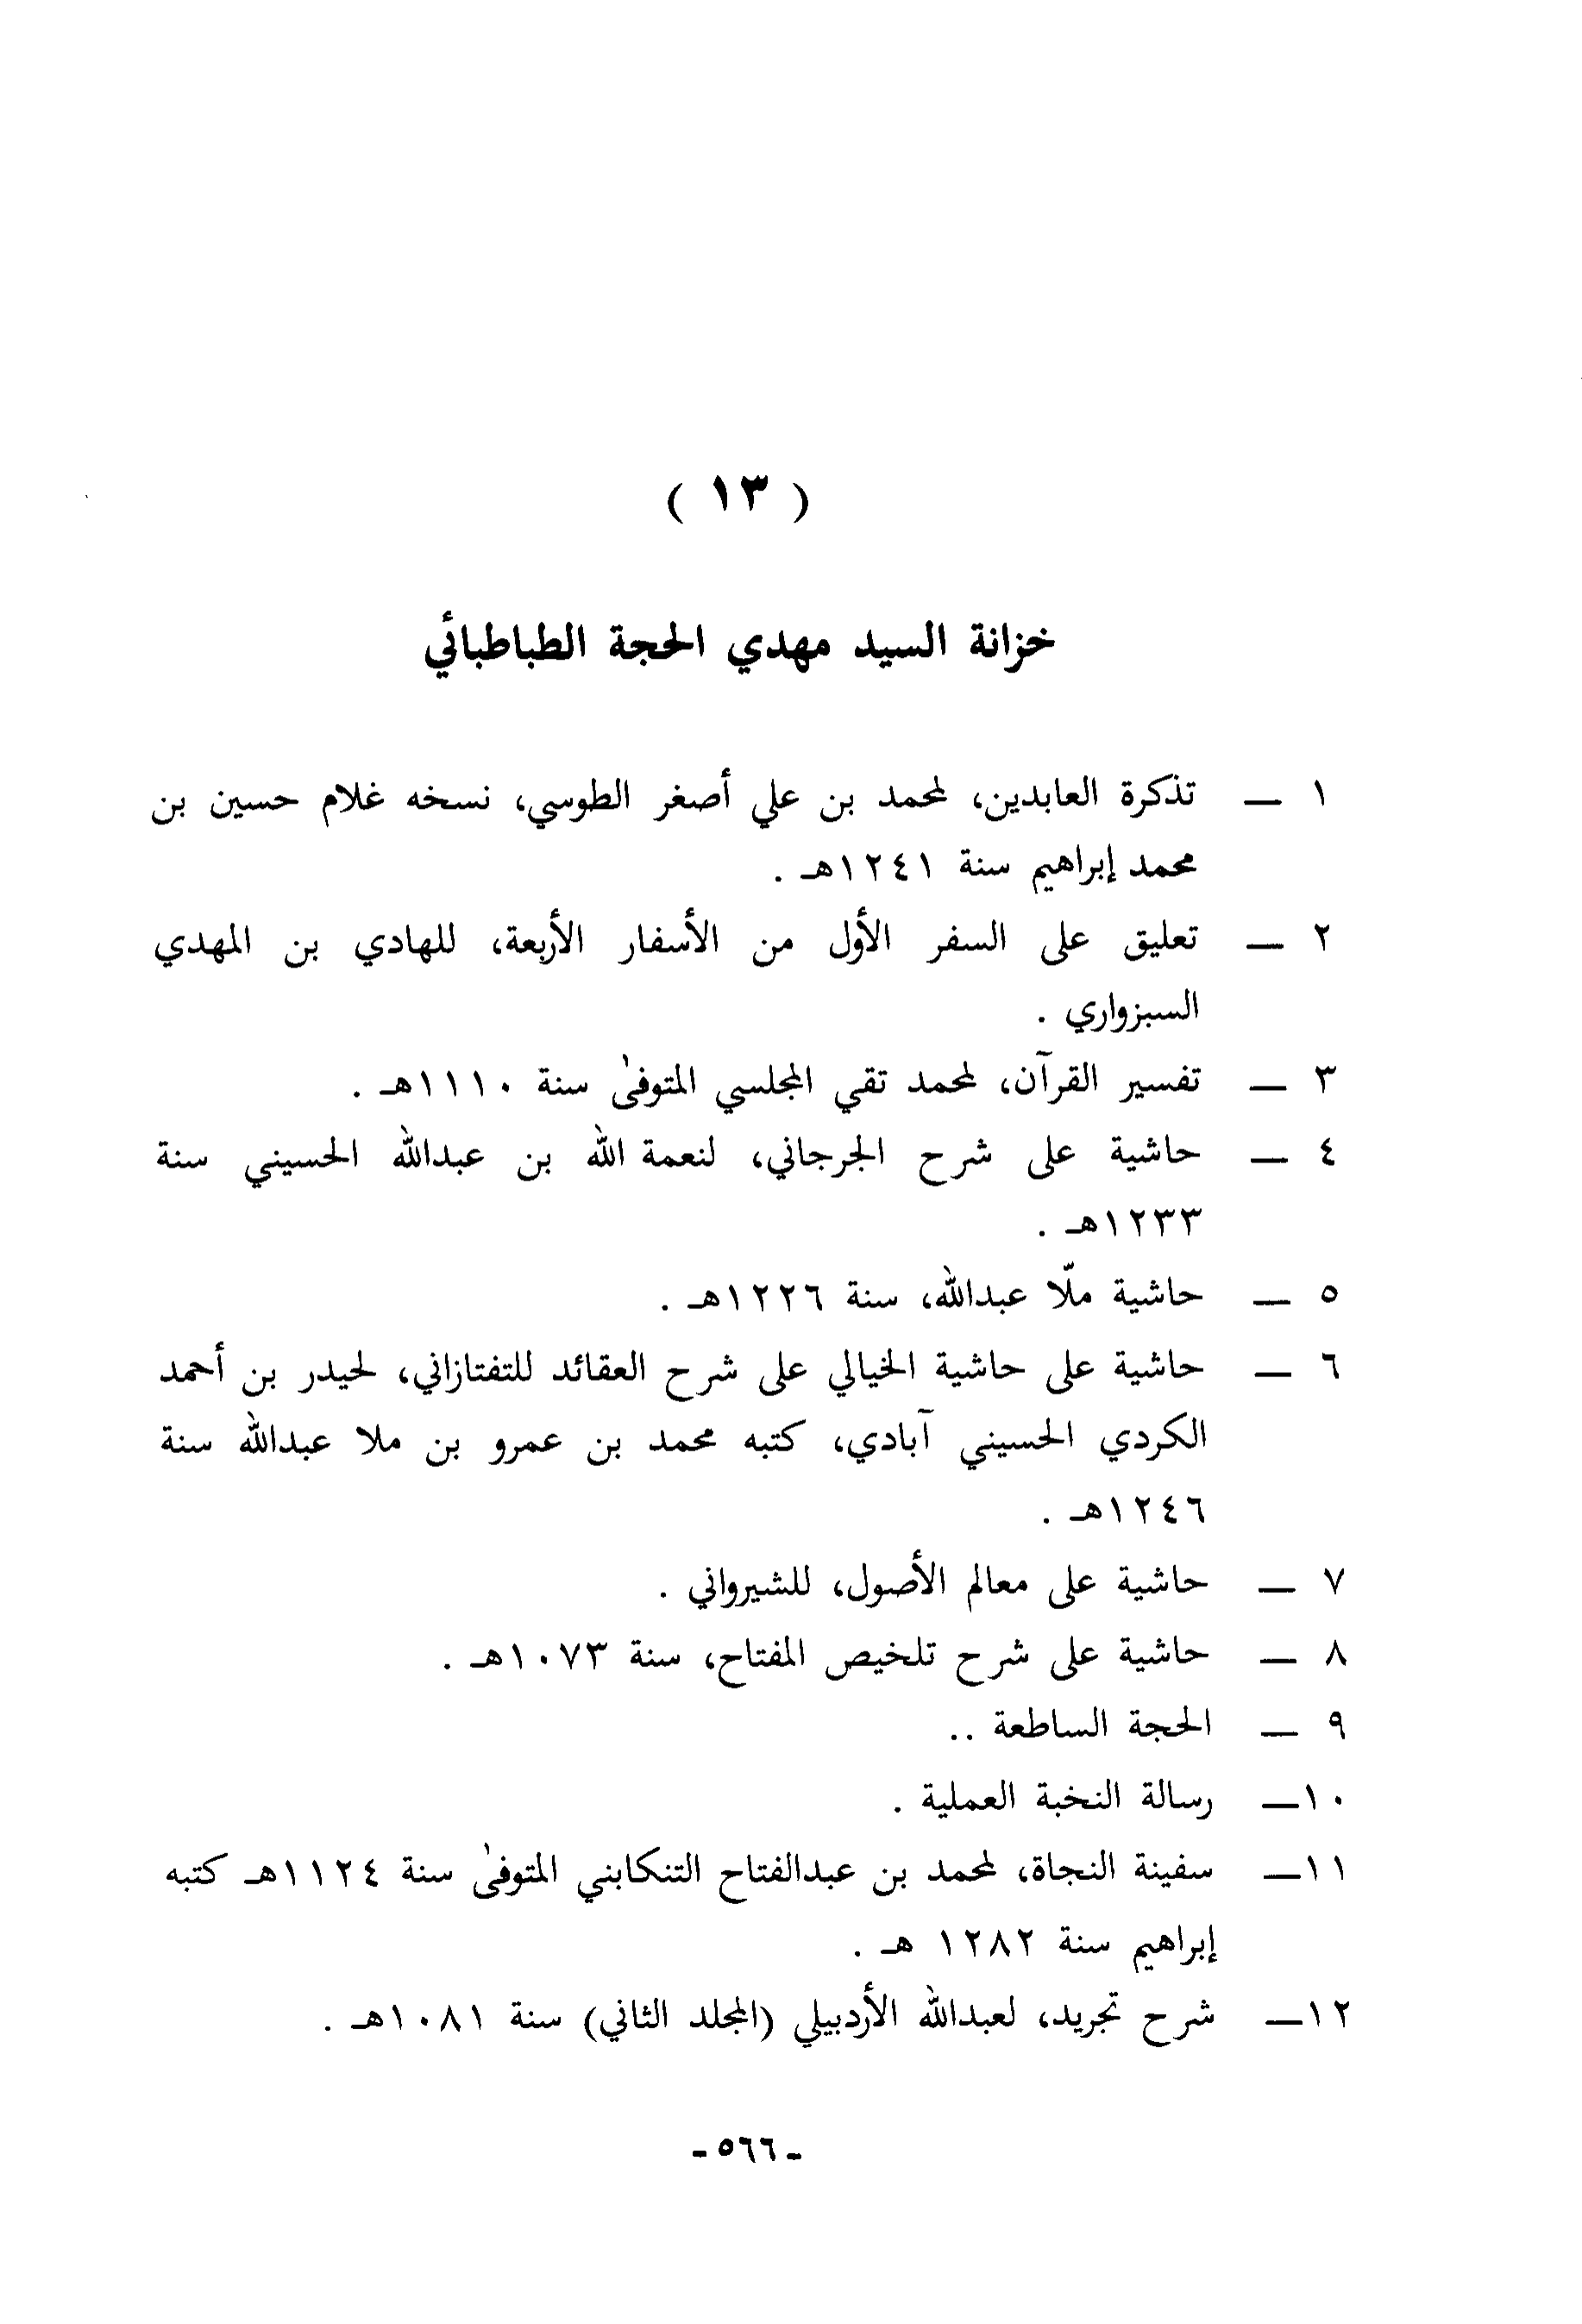 ( ١٣ )
خزانة السيد مهدي الحجة الطباطبائي
١ — تذكرة العابدين، لمحمد بن علي أصغر الطوسي، نسخه غلام حسين بن
محمد إبراهيم سنة ١٢٤١هـ .
٢ — تعليق على السفر الأول من الأسفار الأربعة، للهادي بن المهدي
السبزواري .
٣ — تفسير القرآن، لمحمد تقي المجلسي المتوفىٰ سنة ١١١٠هـ .
٤ — حاشية على شرح الجرجاني، لنعمة الله بن عبدالله الحسيني سنة
١٢٣٣هـ .
٥ — حاشية ملّا عبدالله، سنة ١٢٢٦هـ .
٦ — حاشية على حاشية الخيالي على شرح العقائد للتفتازاني، لحيدر بن أحمد
الكردي الحسيني آبادي، كتبه محمد بن عمرو بن ملا عبدالله سنة
١٢٤٦هـ .
٧ — حاشية على معالم الأصول، للشيرواني .
٨ — حاشية على شرح تلخيص المفتاح، سنة ١٠٧٣هـ .
٩ — الحجة الساطعة ..
١٠— رسالة النخبة العملية .
١١— سفينة النجاة، لمحمد بن عبدالفتاح التنكابني المتوفىٰ سنة ١١٢٤هـ كتبه
إبراهيم سنة ١٢٨٢ هـ .
١٢— شرح تجريد، لعبدالله الأردبيلي (المجلد الثاني) سنة ١٠٨١هـ .
- ٥٦٦ -